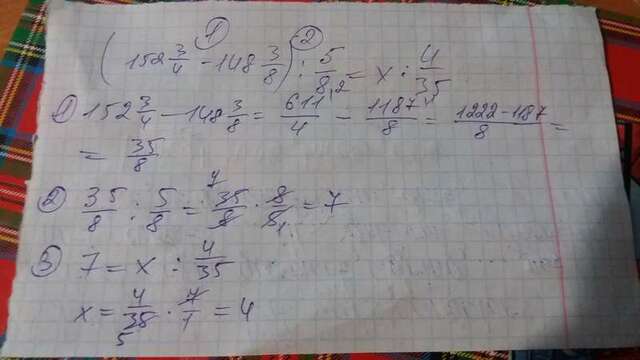 ① ②
(152 3/4 - 148 3/8) : 5/8 = x : 4/35
① 152 3/4 - 148 3/8 = 611/4 ,2 - 1187/8 ,1 = 1222-1187/8 =
= 35/8
② 35/8 : 5/8 = 35/8 7 · 8/5 1 = 7
③ 7 = x : 4/35
x = 4/35 5 · 7/1 = 4